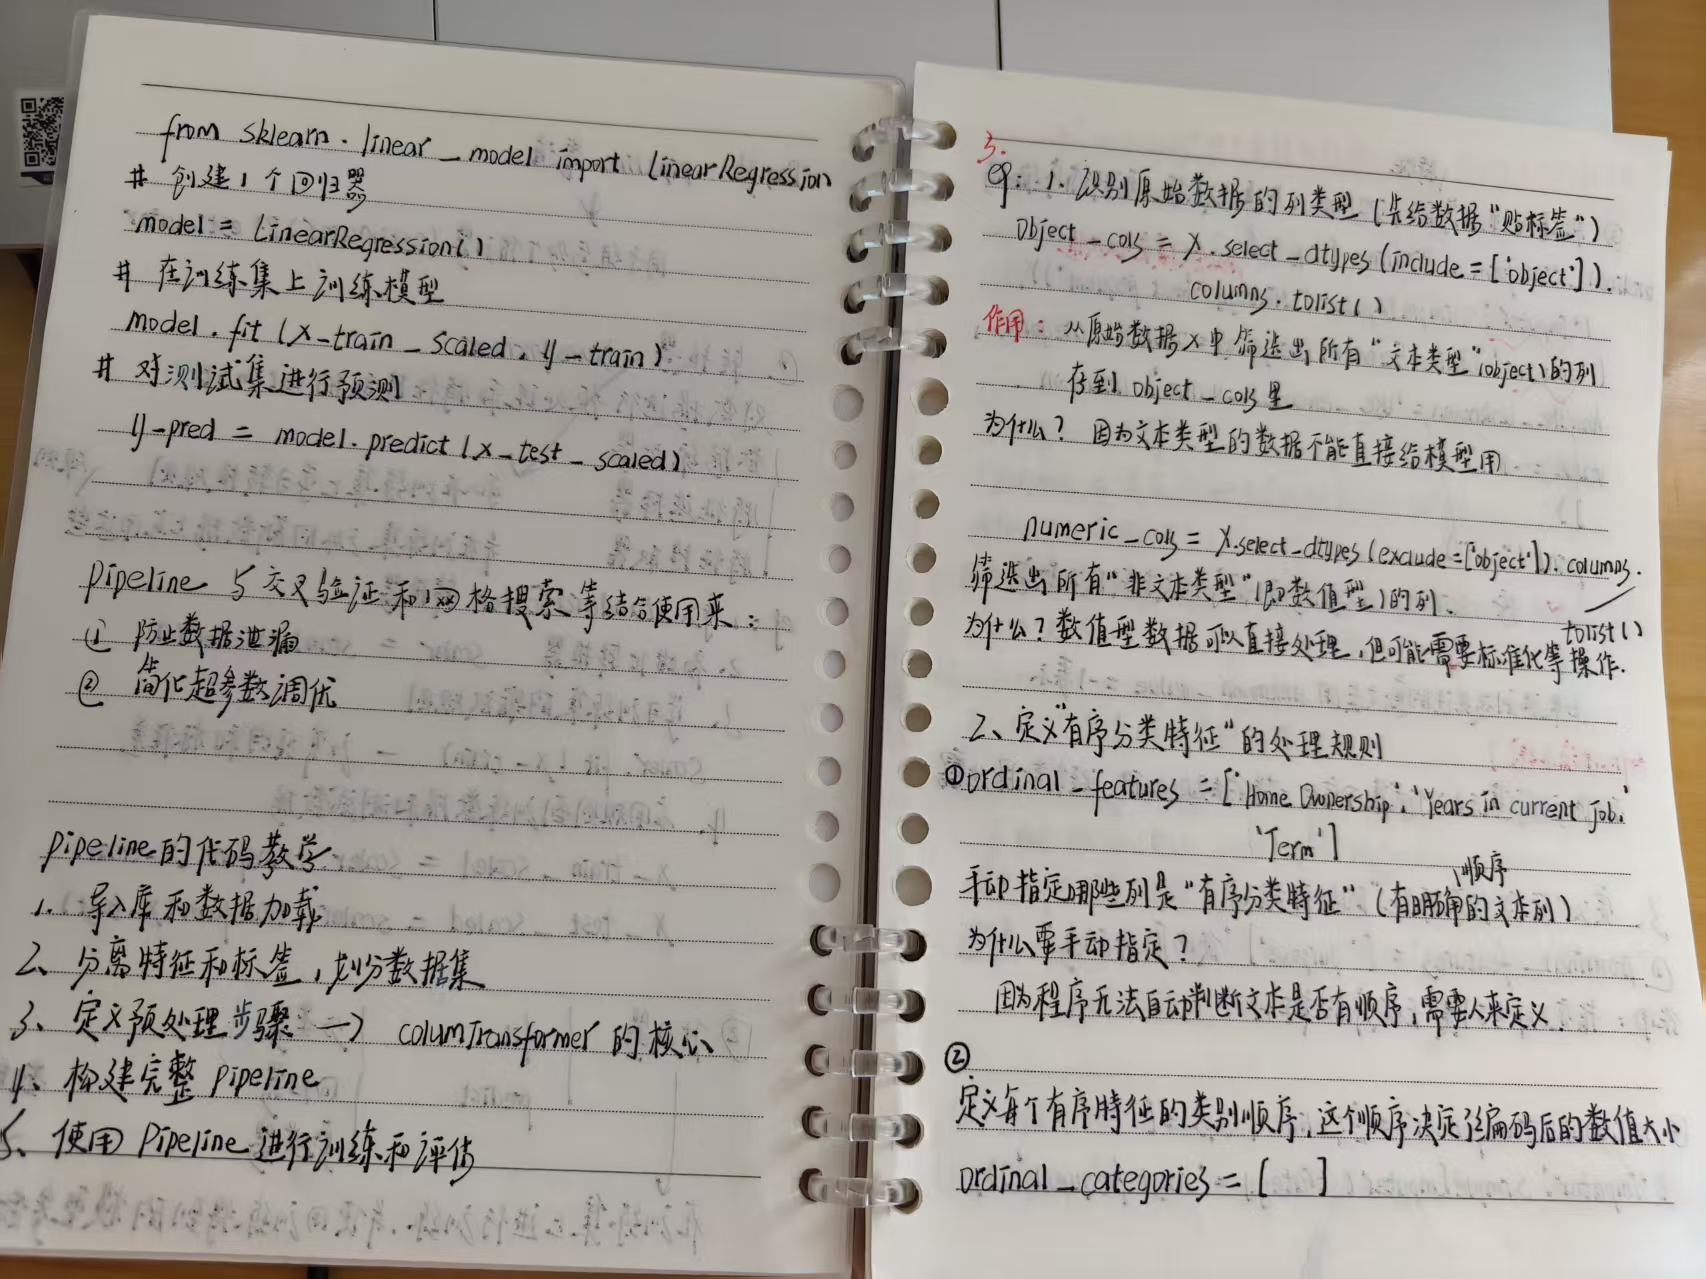 from sklearn.linear_model import LinearRegression
# 创建1个回归器
model = LinearRegression()
# 在训练集上训练模型
model.fit(x_train_scaled, y_train)
# 对测试集进行预测
y_pred = model.predict(x_test_scaled)
pipeline 与交叉验证和网格搜索等结合使用来:
① 防止数据泄漏
② 简化超参数调优
pipeline的代码教学
1、导入库和数据加载
2、分离特征和标签,划分数据集
3、定义预处理步骤 → columTransformer 的核心
4、构建完整 pipeline
5、使用 pipeline 进行训练和评估
3.
eg: 1. 识别原始数据的列类型 (先给数据“贴标签”)
object_cols = X.select_dtypes(include=['object']).
columns.tolist()
作用: 从原始数据X中筛选出所有“文本类型”(object)的列
存到 object_cols 里
为什么? 因为文本类型的数据不能直接给模型用
numeric_cols = X.select_dtypes(exclude=['object']).columns.
tolist()
筛选出所有“非文本类型”(即数值型)的列.
为什么? 数值型数据可以直接处理,但可能需要标准化等操作.
2、定义“有序分类特征”的处理规则
①ordinal_features = ['Home Ownership', 'Years in current job',
'Term']
手动指定哪些列是“有序分类特征”(有明确顺序的文本列)
为什么要手动指定?
因为程序无法自动判断文本是否有顺序,需要人来定义.
②
定义每个有序特征的类别顺序,这个顺序决定了编码后的数值大小
ordinal_categories = [ ]